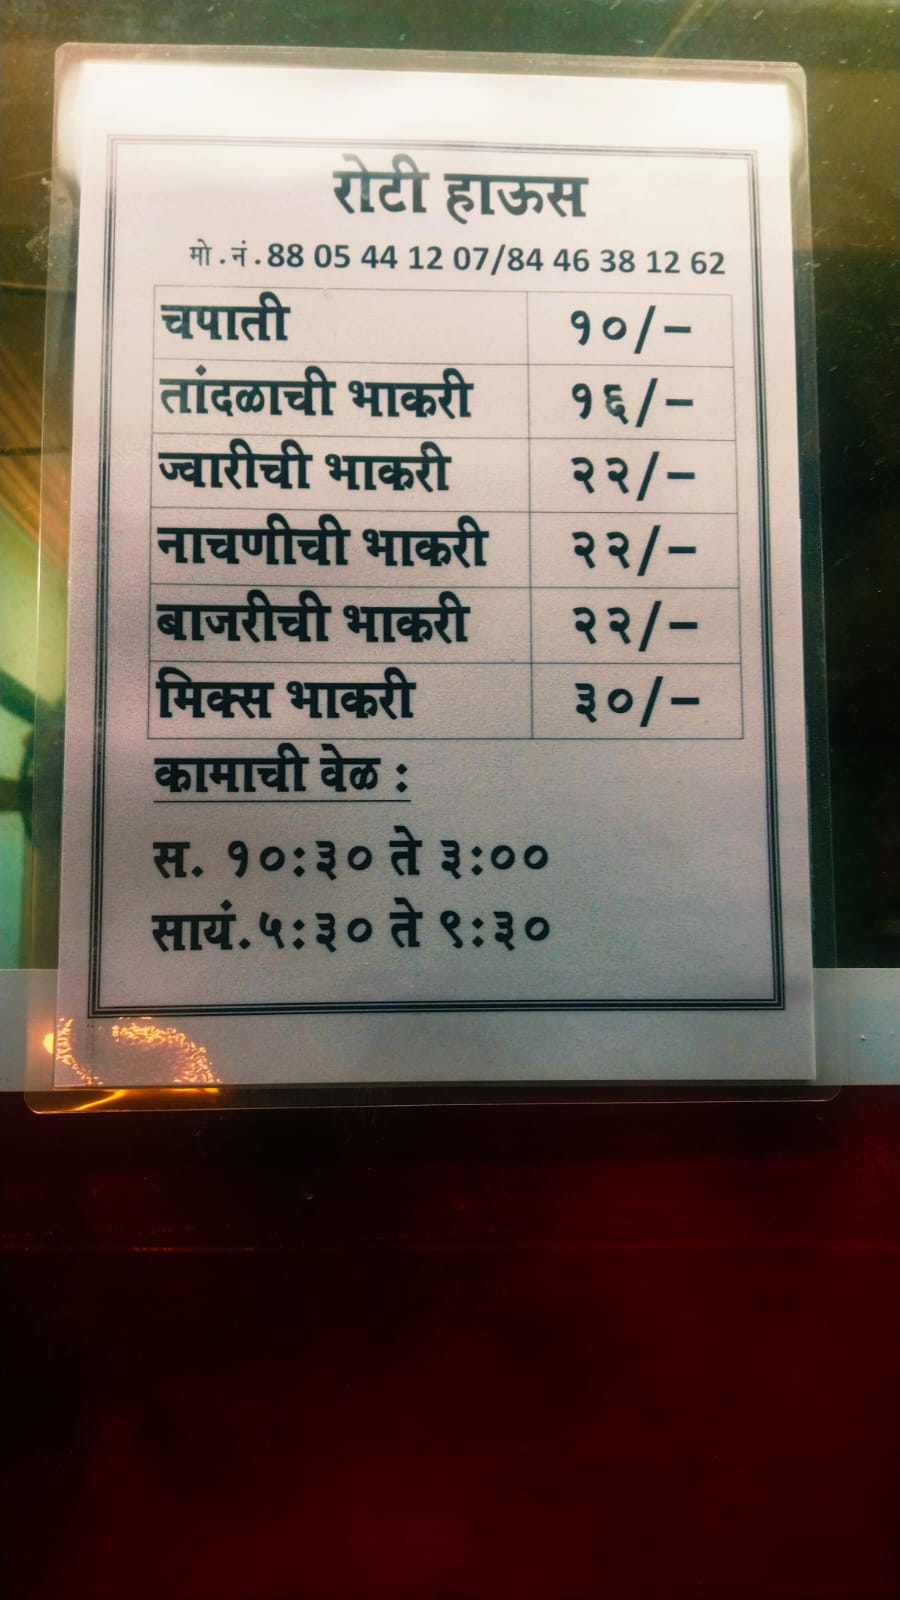 रोटी हाऊस
मो.नं.88 05 44 12 07/84 46 38 12 62
चपाती १०/-
तांदळाची भाकरी १६/-
ज्वारीची भाकरी २२/-
नाचणीची भाकरी २२/-
बाजरीची भाकरी २२/-
मिक्स भाकरी ३०/-
कामाची वेळ :
स. १०:३० ते ३:००
सायं.५:३० ते ९:३०